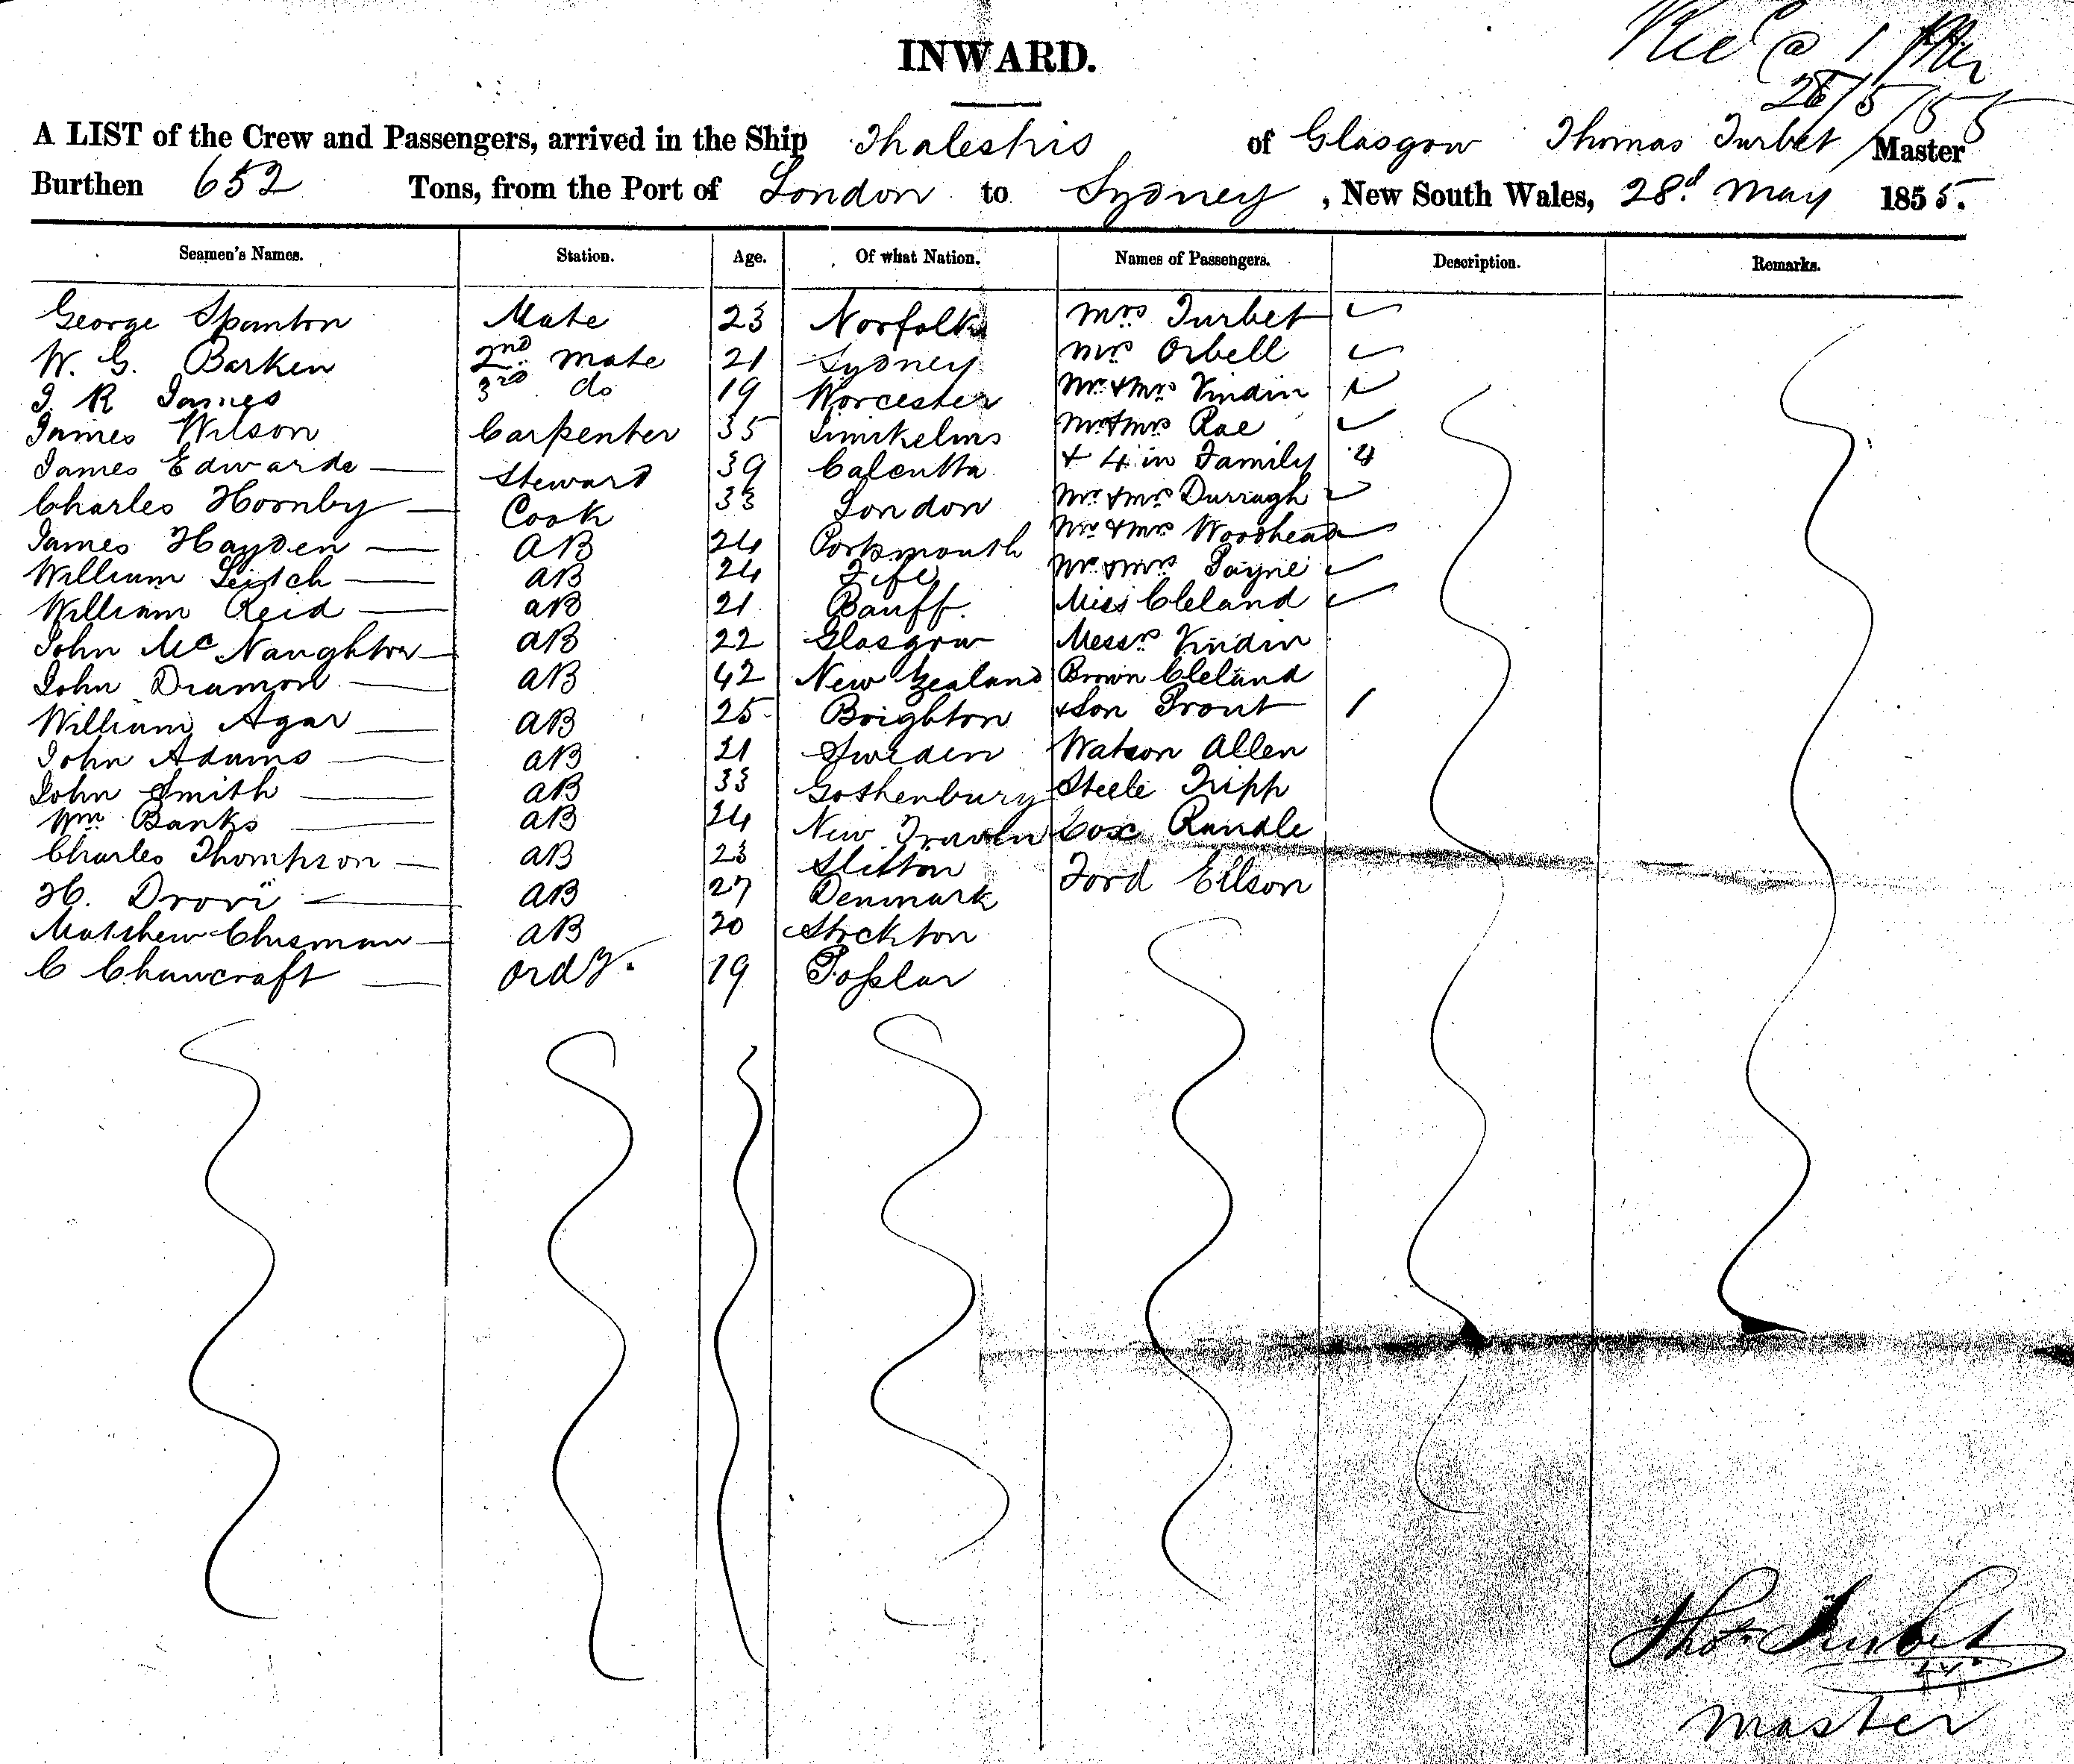 Recd @ 1 PM
28/5/55
INWARD.
A LIST of the Crew and Passengers, arrived in the Ship Thalestris of Glasgow Thomas Turbet Master
Burthen 652 Tons, from the Port of London to Sydney, New South Wales, 28d. May 1855.
Seamen's Names. Station. Age. Of what Nation. Names of Passengers. Description. Remarks.
George Spanton Mate 23 Norfolk Mrs Turbet
W. G. Barken 2nd Mate 21 Sydney Mrs Orbell
J R James 3rd do 19 Worcester Mr & Mrs Vindin
James Wilson Carpenter 35 Mr & Mrs Rae
James Edwards Steward 39 Calcutta & 4 in Family 4
Charles Hornby Cook 33 London Mr & Mrs Durragh
James Hayden AB 24 Portsmouth Mr & Mrs Woodhead
William Leitch AB 24 Fife Mr & Mrs Payne
William Reid AB 21 Banff. Miss Cleland
John McNaughton AB 22 Glasgow Messrs Vindin
John Dramon AB 42 New Zealand Brown Cleland
William Agar AB 25 Brighton & Son Prout 1
John Adams AB 21 Sweden Watson Allen
John Smith AB 33 Gothenburg Steele Tripp
Wm Banks AB 24 New Cox Randle
Charles Thompson AB 23 Ford Ellson
H. Drovi AB 27 Denmark
Matthew Chisman AB 20 Stockton
C Chawcraft Ordy. 19 Poplar
Thos Turbet
Master